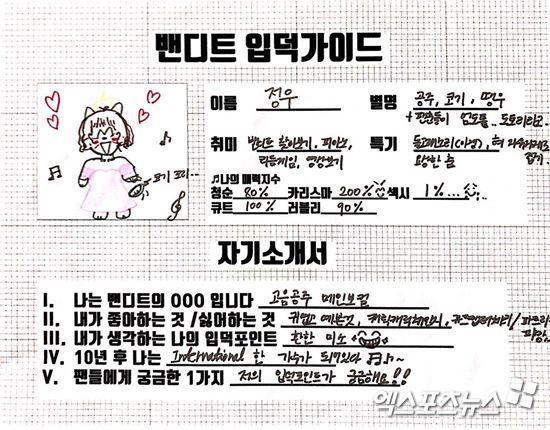 밴디트 입덕가이드
이름 정우 별명 공주, 코기, 떵우
+ 팬분들이 도토리라고..
취미 밴디트 찾아보기, 피아노, 특기
리듬게임, 영상보기
♬나의 매력지수
청순 80% 카리스마 200% 섹시 1%...
큐트 100% 러블리 90%
코기 꼬리...
자기소개서
I. 나는 밴디트의 OOO 입니다 고음공주 메인보컬
II. 내가 좋아하는 것 /싫어하는 것 귀엽고 예쁜것,
III. 내가 생각하는 나의 입덕포인트 환한 미소
IV. 10년 후 나는 International 한 가수가 되어있다 ♬♪~
V. 팬들에게 궁금한 1가지 저의 입덕포인트가 궁금해요!!
엑스포츠뉴스